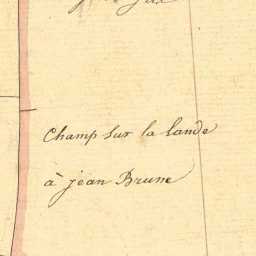 Champ sur la lande
à jean Brune